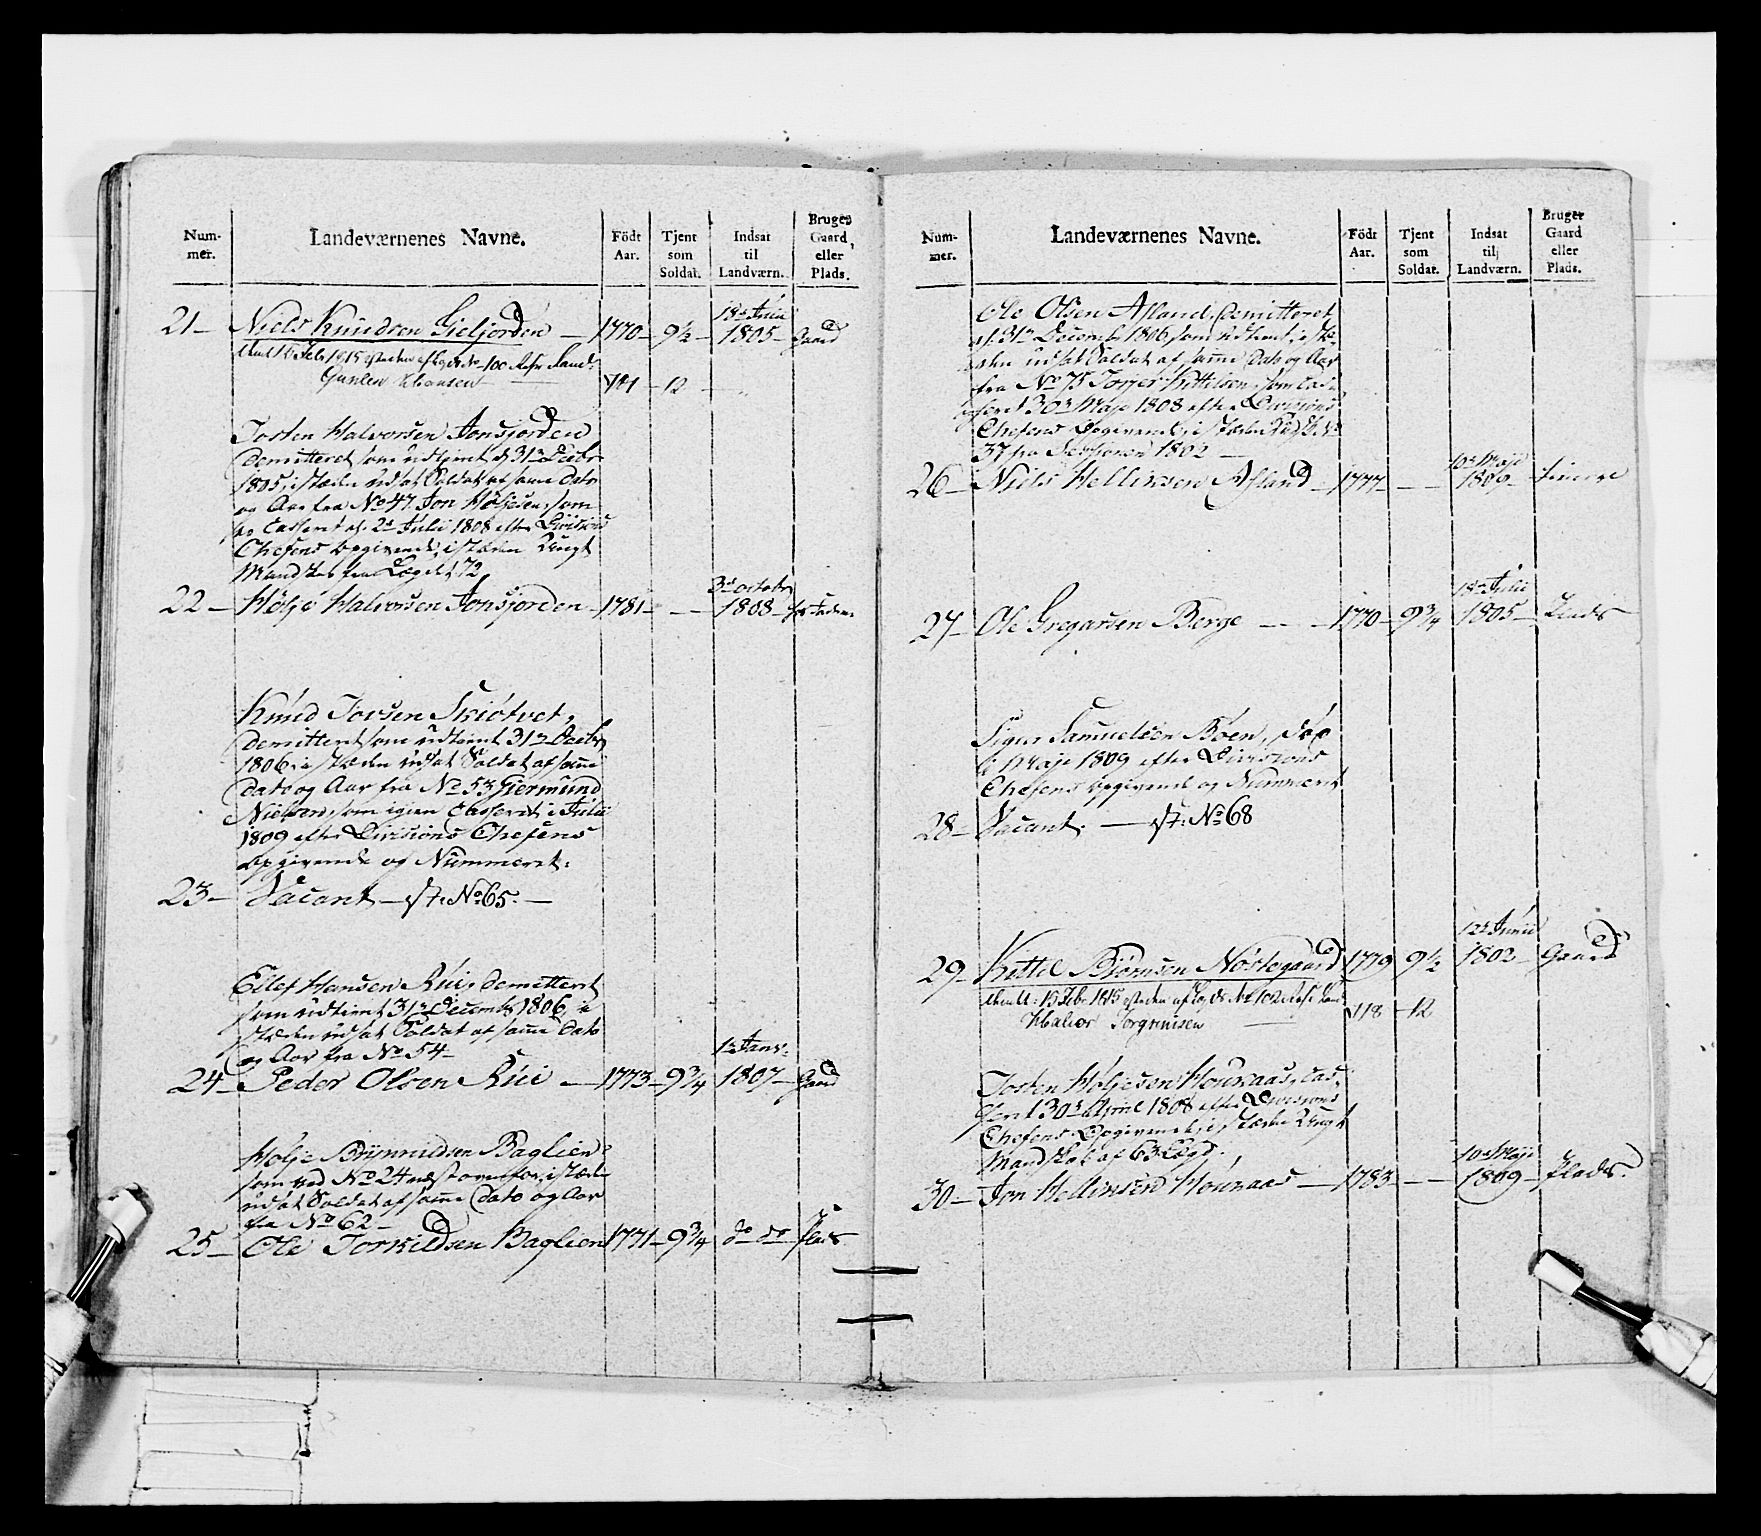 Num-
mer.
Landeværnenes Navne.
Födt
Aar.
Tjent
som
Soldat.
Indsat
til
Landværn.
Bruger
Gaard,
eller
Plads.
21 – Niels Knudsen Gieljorden – 1770 – 9½ – 18de Julii 1805 – Gaard
12
Tosten Halvorsen Jonsjorden
demitteret som udtient d. 31te Decbr
1805, i stæden udsat Soldat af samme Dato
og Aar fra No 47 Jon Høljesen, som
er Casseret d. 2de Julii 1808 efter Divisions
Chefens Opgivende, i stæden Ungt
Mandskab fra Lægdet 72
22 – Hølje Halvorsen Jonsjorden – 1781 – – 3de octobr 1808 –
Knud Tovsen Skiøtvet,
demitteret som udtient 31te Decbr
1806, i stæden udsat Soldat af samme
dato og Aar fra No 53 Giermund
Nielsen, som igien Casseret i Julii
1809 efter Divisions Chefens
opgivende og Nummeret.
23 – Vacant – st: No 65. –
Ellef Hansen Rui, demitteret
som udtient 31te Decembr 1806, i
stæden udsat Soldat af samme Dato
og Aar fra No 54 –
24 – Peder Olsen Rui – 1773 – 9¾ – 1te Janv: 1807 – Gaard
Hølje Brynnildsen Baglien
som ved No 24 næst ovenfor, i stæden
udsat Soldat af samme Dato og Aar
fra No 62 –
25 – Ole Torkildsen Baglien 1771 – 9¾ do do Plads
Num-
mer.
Landeværnenes Navne.
Födt
Aar.
Tjent
som
Soldat.
Indsat
til
Landværn.
Bruger
Gaard
eller
Plads.
Ole Olsen Asland, demitteret
d. 31te Decembr 1806, som udtient, i stæ-
den udsat Soldat af samme Dato og Aar
fra No 75 Torger Kittilsen, som Cas-
seret 30te Maje 1808 efter Divisions
Chefens Opgivende, i stæden
37 fra Sessionen 1802 –
26 – Niels Hellixsen Asland – 1777 – – 10de Maji 1809 –
27 – Ole Gregarsen Berge – – 1770 – 9¾ 18de Julii 1805 – Plads
Sigur Samuelsen Bøen, død
i Maje 1809 efter Divisions
Chefens opgivende og Nummeret
28 – Vacant. – st: No 68
29 – Kittel Biørnsen Nørstegaard 1779 9½ 12te Junii 1802 – Gaard
Halvor Torgrimsen – 12
Tosten Høljesen Houraas, Cas-
seret 30te April 1808 efter Divisions
Chefens Opgivende, i stæden Ungt
Mandskab af 63 Lægd.
30 – Jon Hellixsen Houraas – 1783 – – 10de Maji 1809 – Plads.